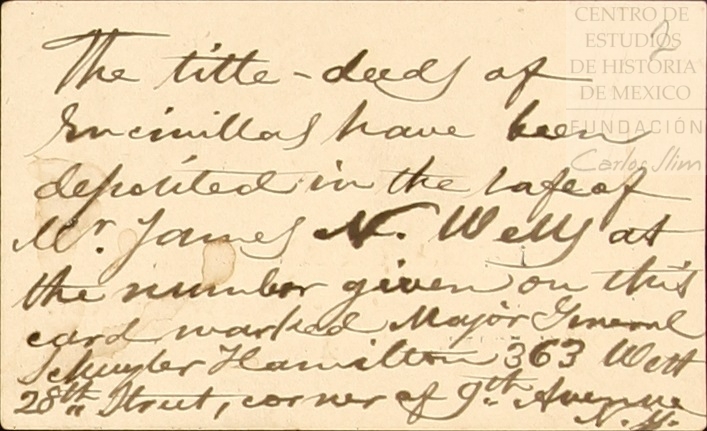 The title-deeds of
Encinillas have been
deposited in the safe of
Mr. James N. Wells at
the number given on this
card marked Major General
Schuyler Hamilton 363 West
28th Street, corner of 9th Avenue
N.Y.
2
CENTRO DE
ESTUDIOS
DE HISTORIA
DE MEXICO
FUNDACIÓN
Carlos Slim